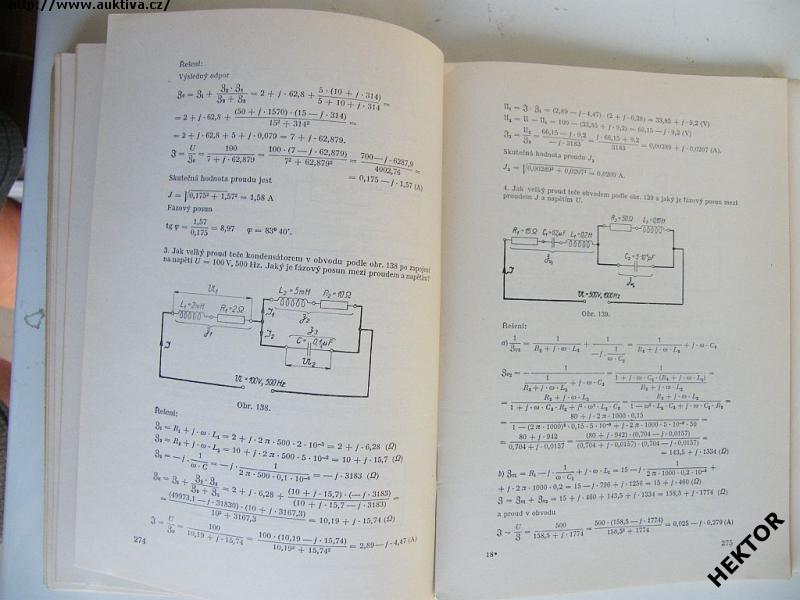 http://www.auktiva.cz/
Řešení:
Výsledný odpor
𝔷e = 𝔷1 + (𝔷2 · 𝔷3)/(𝔷2 + 𝔷3) = 2 + j · 62,8 + (5 · (10 + j · 314))/(5 + 10 + j · 314) =
= 2 + j · 62,8 + ((50 + j · 1570) · (15 — j · 314))/(15² + 314²) =
= 2 + j · 62,8 + 5 + j · 0,079 = 7 + j · 62,879.
ℑ = U/𝔷e = 100/(7 + j · 62,879) = (100 · (7 — j · 62,879))/(7² + 62,879²) = (700 — j · 6287,9)/4002,76 =
= 0,175 — j · 1,57 (A)
Skutečná hodnota proudu jest
J = √(0,175² + 1,57²) = 1,58 A
Fázový posun
tg φ = 1,57/0,175 = 8,97 φ = 83° 40′.
3. Jak velký proud teče kondensátorem v obvodu podle obr. 138 po zapojení
na napětí U = 100 V, 500 Hz. Jaký je fázový posun mezi proudem a napětím?
𝔘1
L1=2mH R1=2Ω
𝔷1
L2=5mH R2=10Ω
𝔷2
ℑ1
ℑ2
𝔷3
C=0,1μF
𝔘2
ℑ
𝔘=100V, 500Hz
Obr. 138.
Řešení:
𝔷1 = R1 + j · ω · L1 = 2 + j · 2 π · 500 · 2 · 10⁻³ = 2 + j · 6,28 (Ω)
𝔷2 = R2 + j · ω · L2 = 10 + j · 2 π · 500 · 5 · 10⁻³ = 10 + j · 15,7 (Ω)
𝔷3 = — j · 1/(ω · C) = — j · 1/(2π · 500 · 0,1 · 10⁻⁶) = — j · 3183 (Ω)
𝔷e = 𝔷1 + (𝔷2 · 𝔷3)/(𝔷2 + 𝔷3) = 2 + j · 6,28 + ((10 + j · 15,7) · (— j · 3183))/(10 + j · 15,7 — j · 3183) =
= ((49973,1 — j · 31830) · (10 + j · 3167,3))/(10² + 3167,3²) = 10,19 + j · 15,74 (Ω)
ℑ = U/𝔷e = 100/(10,19 + j · 15,74) = (100 · (10,19 — j · 15,74))/(10,19² + 15,74²) = 2,89 — j · 4,47 (A)
274
𝔘1 = ℑ · 𝔷1 = (2,89 — j · 4,47) · (2 + j · 6,28) = 33,85 + j · 9,2 (V)
𝔘2 = 𝔘 — 𝔘1 = 100 — (33,85 + j · 9,2) = 66,15 — j · 9,2 (V)
ℑ2 = 𝔘2/𝔷3 = (66,15 — j · 9,2)/(— j · 3183) = = 0,00289 + j · 0,0207 (A).
Skutečná hodnota proudu J2
J2 = √(0,00289² + 0,0207²) = 0,0209 A.
4. Jak velký proud teče obvodem podle obr. 139 a jaký je fázový posun mezi
proudem J a napětím U.
R1=15Ω C1=0,2μF L1=0,2H
R2=80Ω L2=0,15H
𝔘=500V, 1000Hz
Obr. 139.
Řešení:
= (80 + j · 2 π · 1000 · 0,15)/(1 — (2 π · 1000)² · 0,15 · 5 · 10⁻⁸ + j · 2 π · 1000 · 5 · 10⁻⁸ · 80) =
= (80 + j · 942)/(0,704 + j · 0,0157) = ((80 + j · 942) · (0,704 — j · 0,0157))/((0,704 + j · 0,0157) · (0,704 — j · 0,0157)) =
= 143,5 + j · 1334 (Ω)
+ j · 2 π · 1000 · 0,2 = 15 — j · 796 + j · 1256 = 15 + j · 460 (Ω)
= 15 + j · 460 + 143,5 + j · 1334 = 158,5 + j · 1774 (Ω)
a proud v obvodu
ℑ = U/𝔷 = 500/(158,5 + j · 1774) = (500 · (158,5 — j · 1774))/(158,5² + 1774²) = 0,025 — j · 0,279 (A)
18*
275
HEKTOR